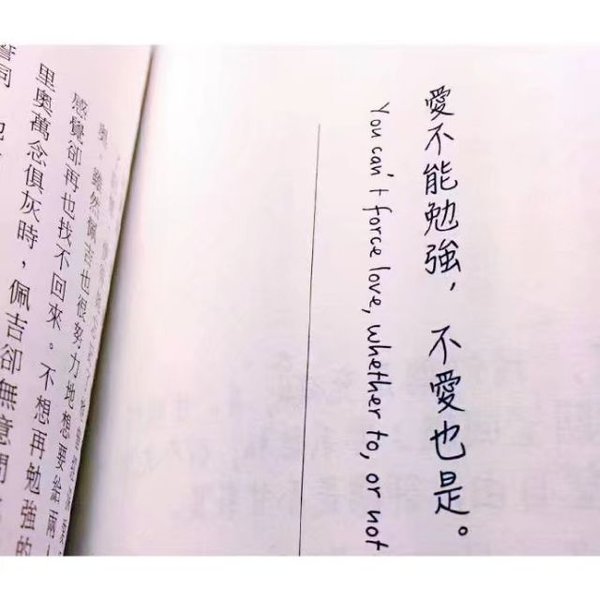 愛不能勉強，不愛也是。
You can't force love, whether to, or not
雖然佩吉也很努力地想要給兩
感覺卻再也找不回來。不想再勉強的
里奧萬念俱灰時，佩吉卻無意間
誓詞